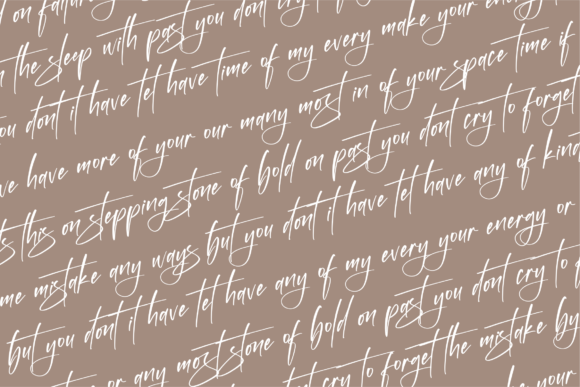 on failure
the sleep with past you dont cry
you dont it have tet have time of my every make your energy
have more of your our many most in of your space time if
this on stepping stone of bold on past you dont cry to forget
mistake any ways but you dont it have tet have any of kind
but you dont it have tet have any of my every your energy or
or any most stone of bold on past you dont cry to
cry to forget the mistake by
your